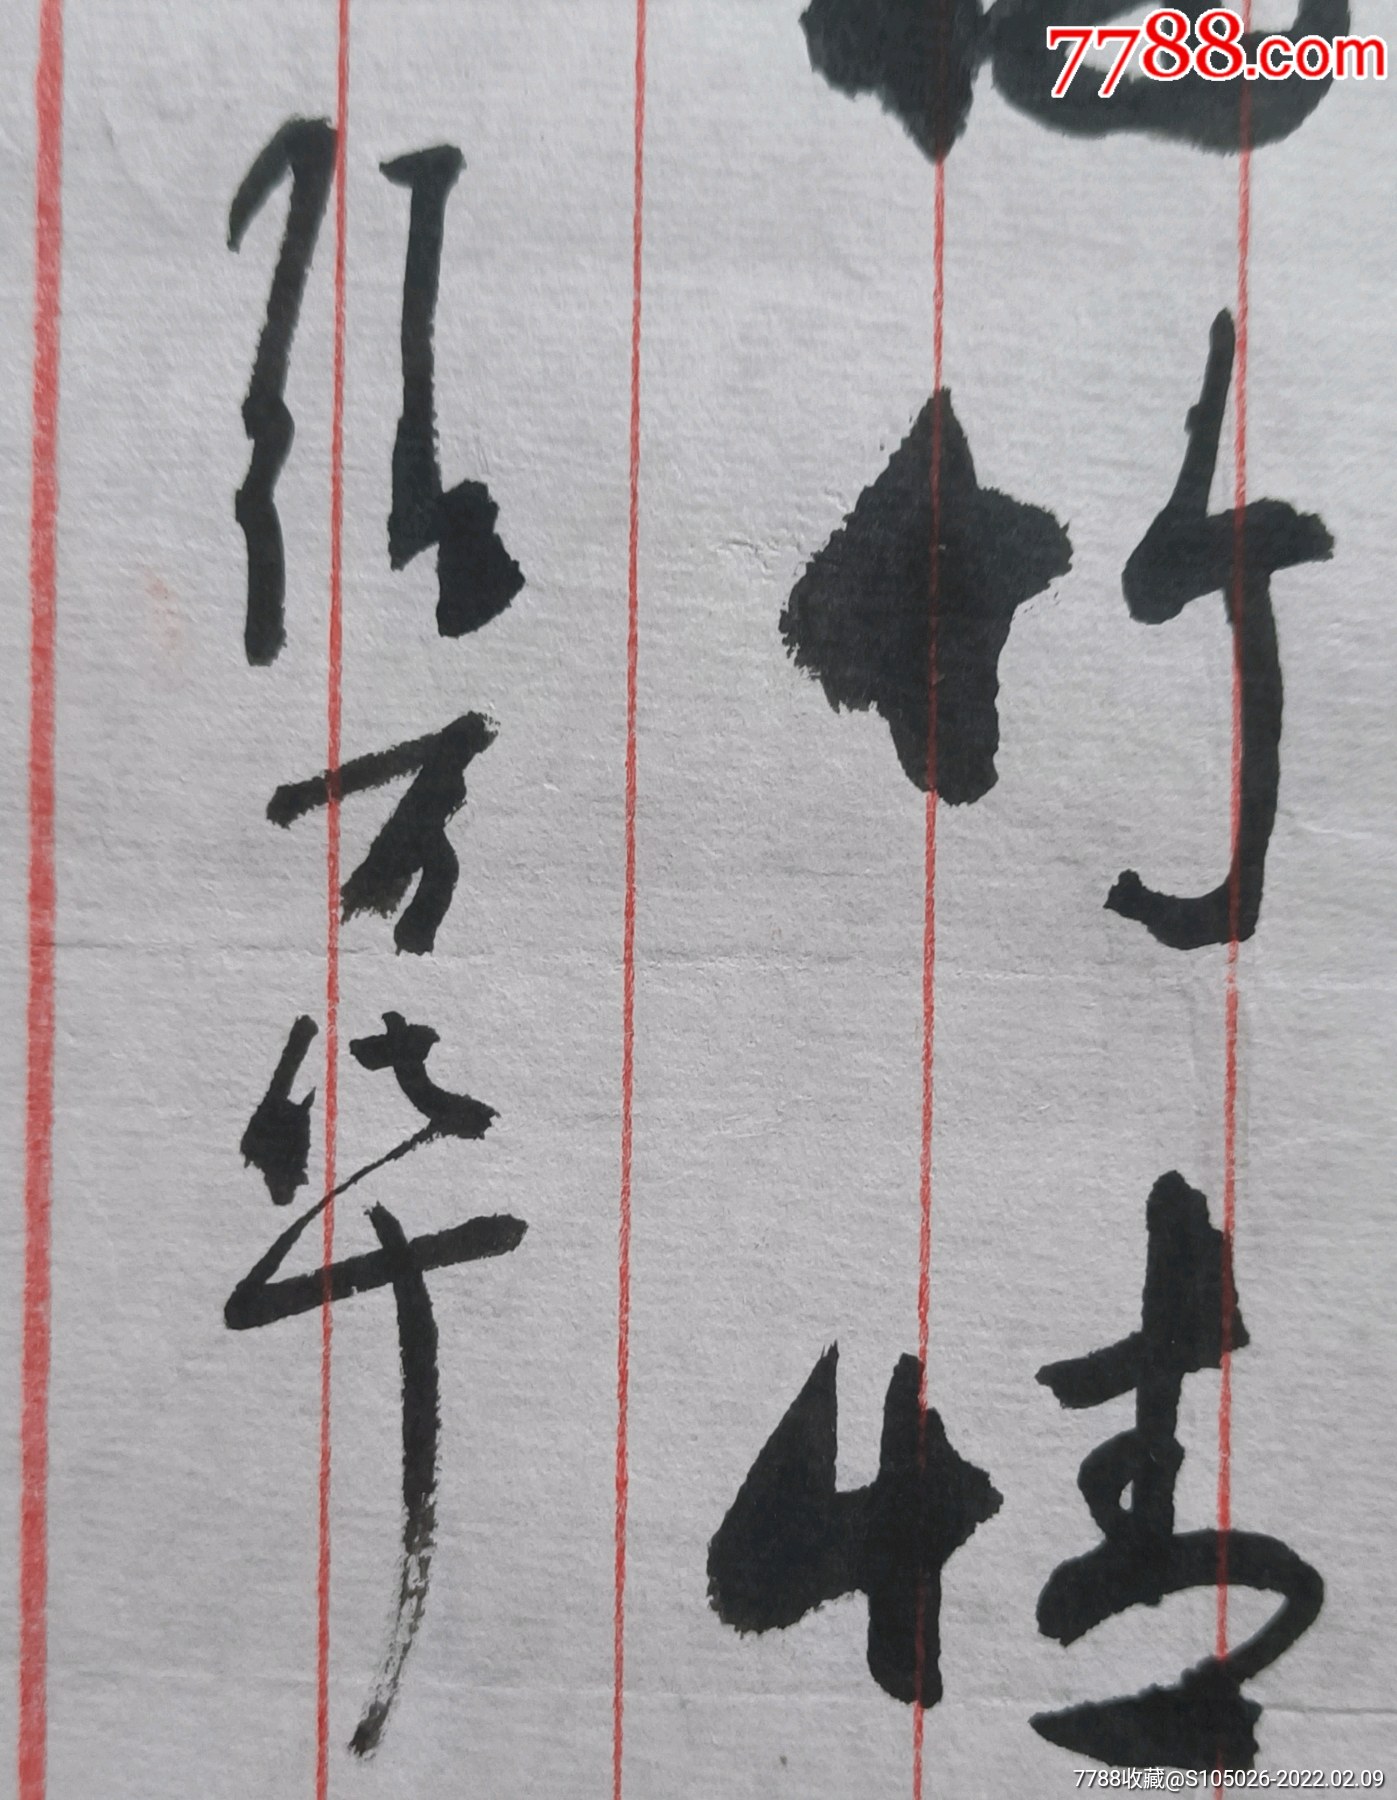 7788.com
竹情
万华
7788收藏@S105026-2022.02.09